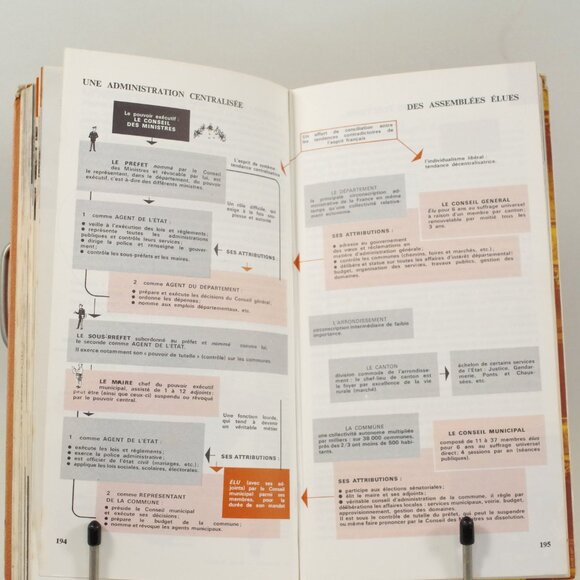 UNE ADMINISTRATION CENTRALISÉE
Le pouvoir exécutif :
LE CONSEIL
DES MINISTRES
LE PRÉFET nommé par le Conseil
des Ministres et révocable par lui, est
le représentant, dans le département, du pouvoir
exécutif, c'est-à-dire des différents ministres.
L'esprit de système
tendance centralisatrice
Un rôle difficile, qui
exige à la fois sou-
plesse et autorité
1 comme AGENT DE L'ÉTAT :
● veille à l'exécution des lois et règlements;
● représente toutes les administrations
publiques et contrôle leurs services ;
● dirige la police et renseigne le gouver-
nement;
● contrôle les sous-préfets et les maires.
SES ATTRIBUTIONS
2 comme AGENT DU DÉPARTEMENT
● prépare et exécute les décisions du Conseil général;
● ordonne les dépenses;
● nomme aux emplois départementaux, etc.
LE SOUS-PRÉFET subordonné au préfet et nommé comme lui,
le seconde comme AGENT DE L'ÉTAT.
Il exerce notamment son « pouvoir de tutelle » (contrôle) sur les communes
LE MAIRE chef du pouvoir exécutif
municipal, assisté de 1 à 12 adjoints;
peut être (ainsi que ceux-ci) suspendu ou révoqué
par le pouvoir central.
Une fonction lourde,
qui tend à devenir
un véritable métier
1 comme AGENT DE L'ÉTAT :
● exécute les lois et règlements;
● exerce la police administrative;
● est officier de l'état civil (mariages, etc.);
● applique les lois sociales, scolaires, électorales.
SES ATTRIBUTIONS
ÉLU (avec ses ad-
joints) par le Conseil
municipal parmi ses
membres, pour la
durée de son mandat
2 comme REPRÉSENTANT
DE LA COMMUNE :
● préside le Conseil municipal
et exécute ses décisions;
● prépare le budget de la commune;
● nomme et révoque les agents municipaux.
194
DES ASSEMBLÉES ÉLUES
Un effort de conciliation entre
les tendances contradictoires de
l'esprit français
l'individualisme libéral
tendance décentralisatrice.
LE DÉPARTEMENT
la principale circonscription ad-
ministrative de la France en même
temps qu'une collectivité relative-
ment autonome
LE CONSEIL GÉNÉRAL
élu pour 6 ans au suffrage universel
à raison d'un membre par canton;
renouvelable par moitié tous les
3 ans.
SES ATTRIBUTIONS :
● adresse au gouvernement
des vœux et réclamations en
matière d'administration générale;
● contrôle les communes (chemins, foires et marchés, etc.);
● délibère et statue sur toutes les affaires d'intérêt départemental :
budget, organisation des services, travaux publics, gestion des
domaines.
L'ARRONDISSEMENT
circonscription intermédiaire de faible
importance.
LE CANTON
division commode de l'arrondisse-
ment : le chef-lieu de canton est
le foyer par excellence de la vie
rurale (marché)
échelon de certains services
de l'État : Justice, Gendar-
merie, Ponts et Chaus-
sées, etc.
LA COMMUNE
une collectivité autonome multipliée
par milliers : sur 38 000 communes,
près des 2/3 ont moins de 500 habi-
tants.
LE CONSEIL MUNICIPAL
composé de 11 à 37 membres élus
pour 6 ans au suffrage universel
direct; 4 sessions par an (séances
publiques).
SES ATTRIBUTIONS :
● participe aux élections sénatoriales;
● élit le maire et ses adjoints;
● véritable conseil d'administration de la commune, il règle par
délibérations les affaires locales : services municipaux, voirie, budget,
approvisionnement, gestion des domaines.
Il est sous le contrôle de tutelle du préfet, qui peut le suspendre
ou même faire prononcer par le Conseil des Ministres sa dissolution.
195